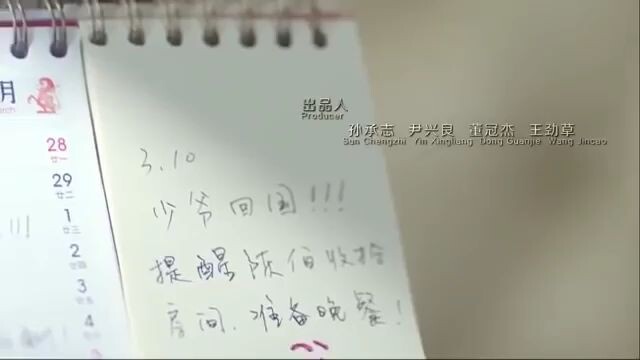 月
March
28
廿一
29
廿二
1
廿三
2
廿四
3
廿五
4
廿六
!!!
出品人
Producer
孙承志 尹兴良 董冠杰 王劲草
Sun Chengzhi Yin Xingliang Dong Guanjie Wang Jincao
3.10
少爷回国!!!
提醒陈伯收拾
房间.准备晚餐!